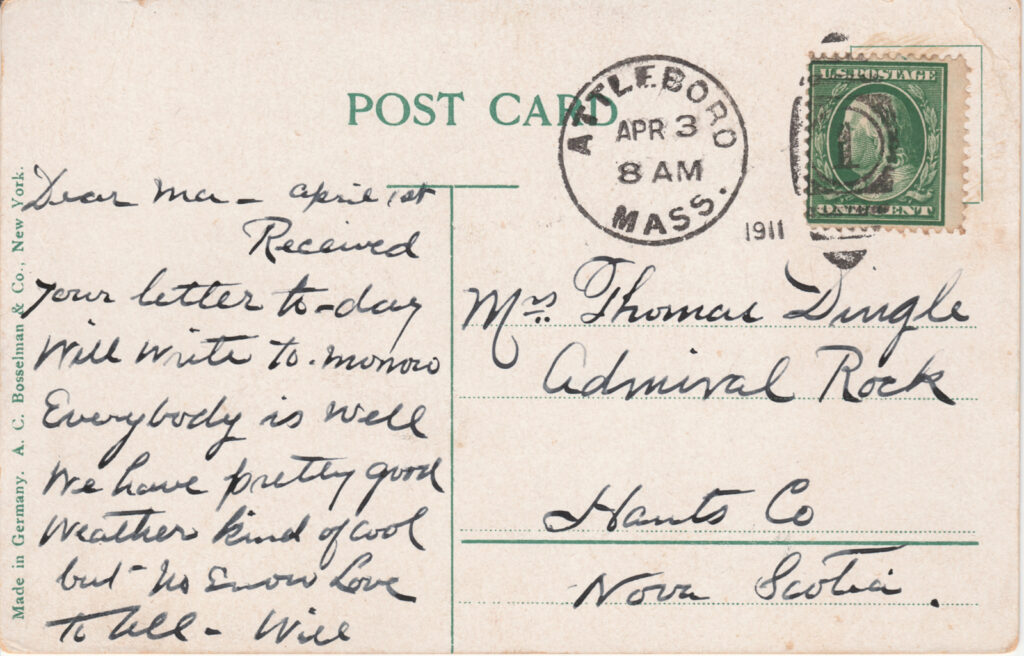 POST CARD
ATTLEBORO
APR 3
8 AM
MASS.
1911
U.S. POSTAGE
1
ONE CENT
Made in Germany. A. C. Bosselman & Co., New York.
Dear Ma - April 1st
Received
your letter to-day
Will write to-morrow
Everybody is well
We have pretty good
Weather kind of cool
but no snow Love
To all - Will
Mrs. Thomas Dingle
Admiral Rock
Hants Co
Nova Scotia.